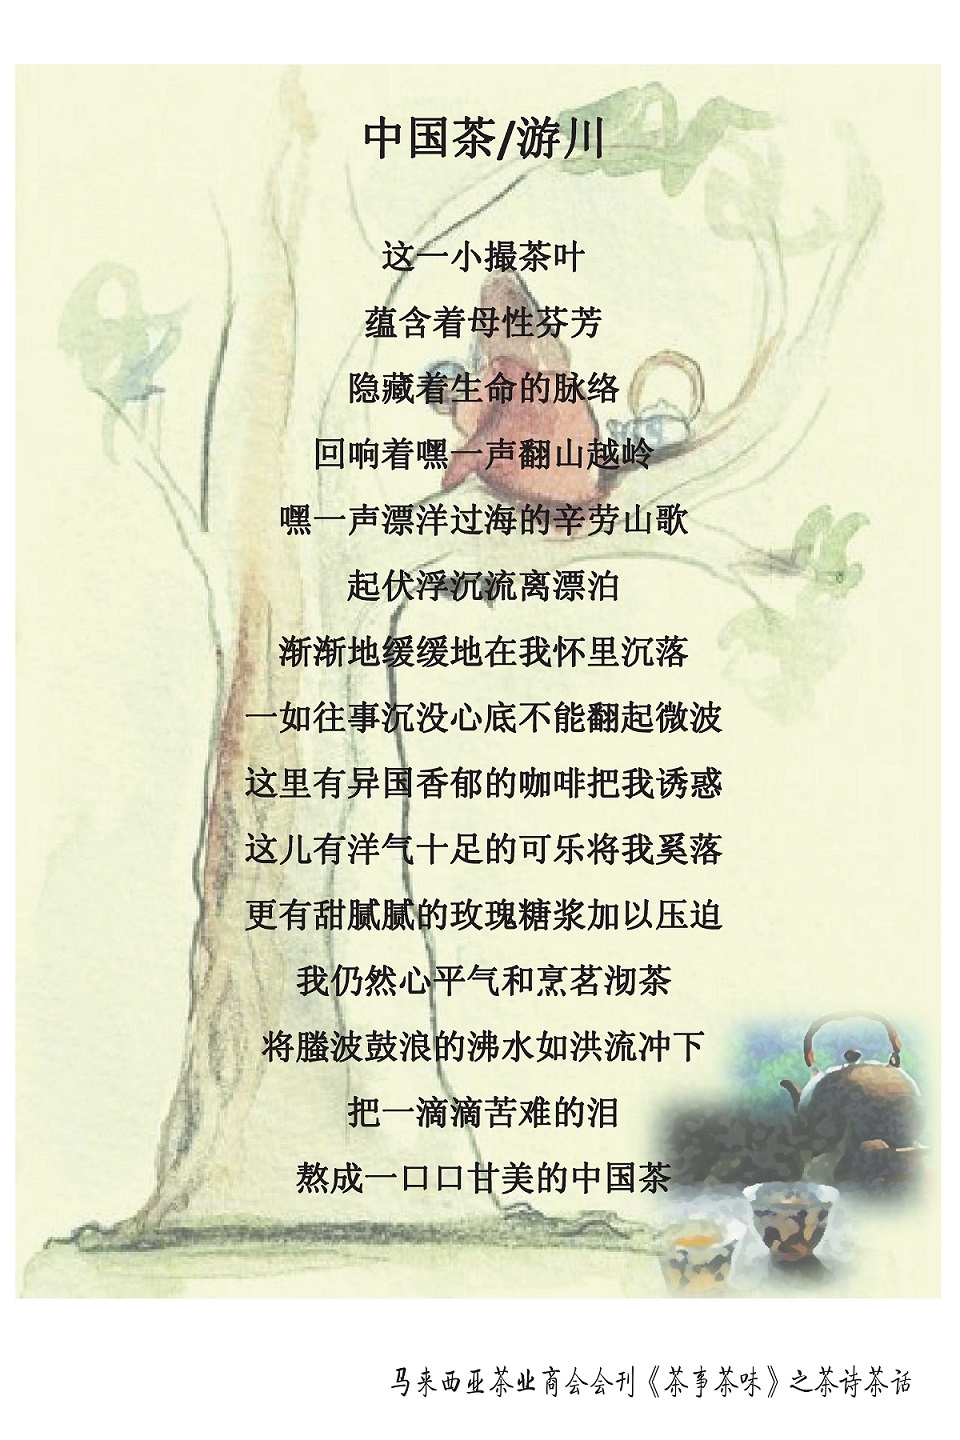 中国茶/游川
这一小撮茶叶
蕴含着母性芬芳
隐藏着生命的脉络
回响着嘿一声翻山越岭
嘿一声漂洋过海的辛劳山歌
起伏浮沉流离漂泊
渐渐地缓缓地在我怀里沉落
一如往事沉没心底不能翻起微波
这里有异国香郁的咖啡把我诱惑
这儿有洋气十足的可乐将我奚落
更有甜腻腻的玫瑰糖浆加以压迫
我仍然心平气和烹茗沏茶
将螣波鼓浪的沸水如洪流冲下
把一滴滴苦难的泪
熬成一口口甘美的中国茶
马来西亚茶业商会会刊《茶事茶味》之茶诗茶话